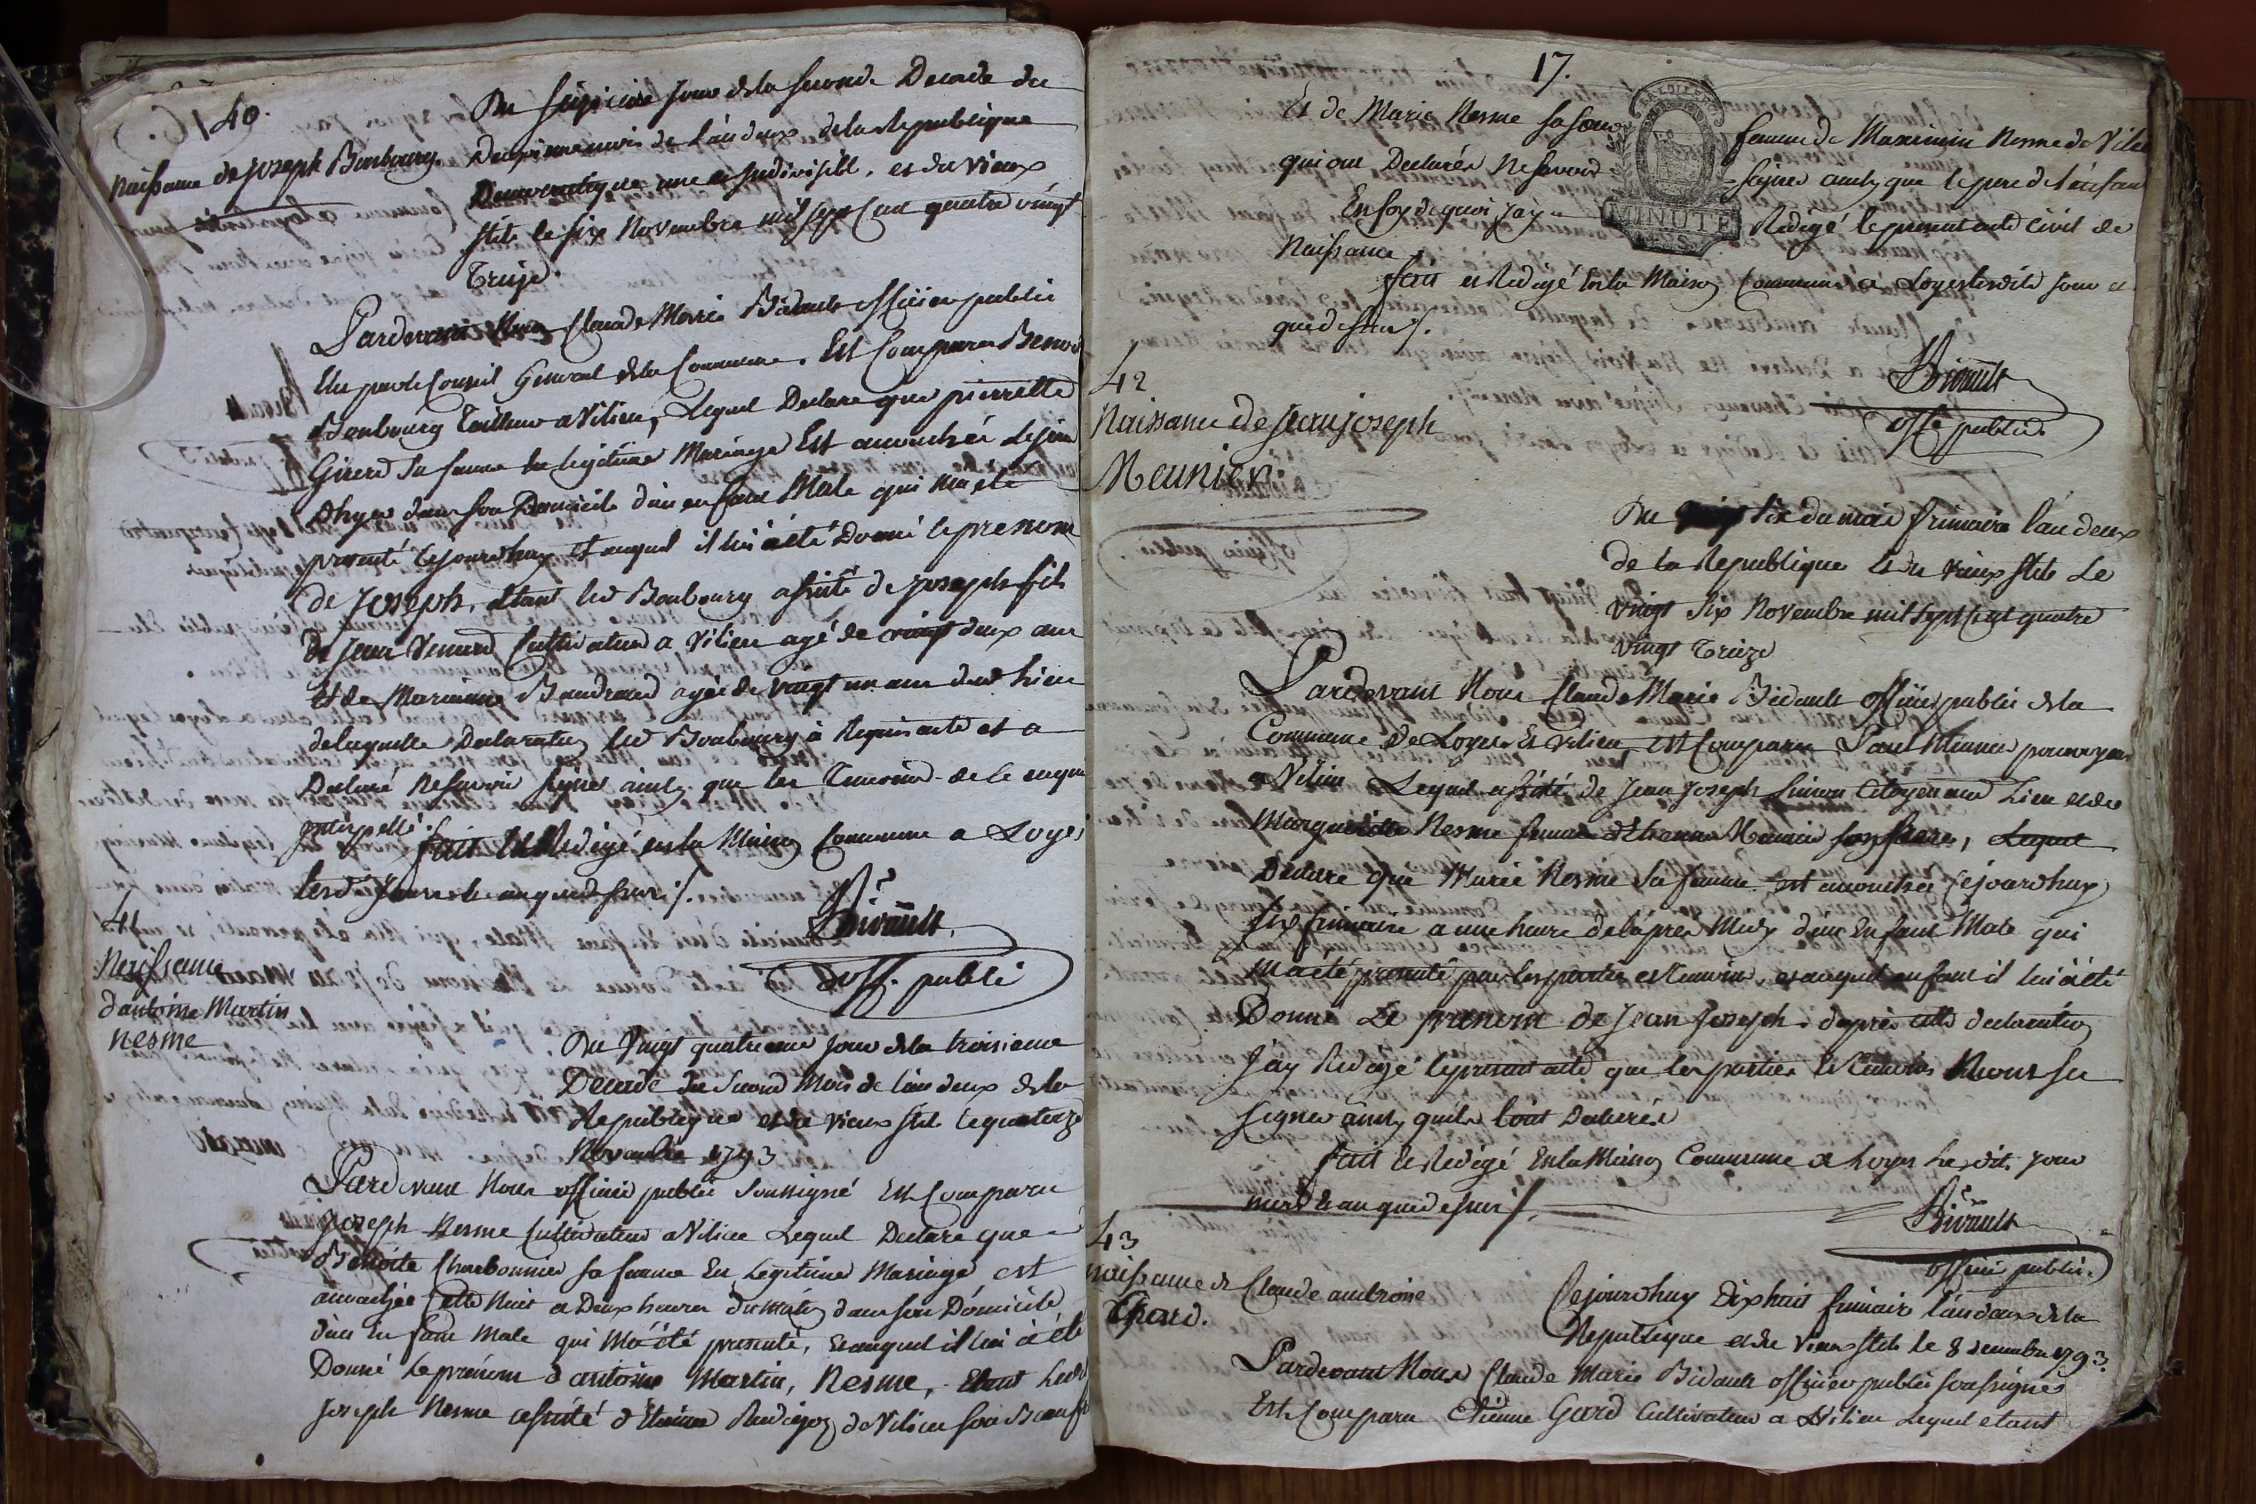 40.
Naissance de Joseph Bonbourg
Du seizieme jour de la seconde Decade du
Deuxieme mois de l'an deux de la Republique
Democratique une et Indivisible, et du vieux
stile le six Novembre mil sept Cent quatre vingt
Treize.
Pardevant Nous Claude Marie Bidault officier public
Elu par le Conseil General de la Commune. Est Comparu Benoit
Bonbourg Tailleur a Vilieu, Lequel Declare que pierrette
Girerd sa femme en legitime Mariage Est accouchée
d'hyer dans son Domicile d'un enfant Male qui m'a été
presenté cejourdhuy et auquel il lui a été Donné le prenom
de Joseph, etant led Bonbourg assisté de Joseph fils
de Jean Venard Cultivateur a Vilieu agé de vingt deux ans
Et de Marianne Baudrand agée de vingt un ans dud lieu
de laquelle Declaration led Bonbourg a Requis acte et a
Declaré ne savoir signer ainsy que les Temoins de ce enquis
interpellé.
fait et Redigé en la Maison Commune a Loyes
lesd Jour et an que dessus ./.
Bidault
off. public
41
Naissance
d'antoine Martin
nesme
Du Vingt quatrieme jour de la troisieme
Decade du second Mois de l'an deux de la
Republique et du vieux stile le quatorze
Novembre 1793
Pardevant Nous officier public soussigné Est Comparu
Joseph Nesme Cultivateur a Vilieu Lequel Declare que
Benoite Charbonnier sa femme En Legitime Mariage est
accouchée cette Nuit a Deux heures du matin dans son Domicile
d'un Enfant Male qui M'a été presenté, et auquel il lui a été
Donné le prénom d'antoine Martin, Nesme, Etant Led
Joseph Nesme assisté d'Etienne de Vilieu son Beaufr
17.
MINUTE
Et de Marie Nesme sa soeur femme de Maximin Nesme de Vilieu
qui ont Declarés Ne savoir signer ainsy que le pere de l'enfant
En foy de quoi J'ay Redigé le present acte Civil de
Naissance
fait et Redigé En la Maison Commune a Loyes lesdits jour et
que dessus ./.
Bidault
offr public
42
Naissance de Jean joseph
Meunier
Du six du mois frimaire l'an deux
de la Republique et du vieux stile Le
vingt six Novembre mil sept Cent quatre
vingt Treize
Pardevant Nous Claude Marie Bidault officier public de la
Commune De Loyes Et Vilieu, est Comparu Paul Meunier
a Vilieu Lequel assisté de Jean Joseph Citoyen aud Lieu et de
Marguerite Nesme femme d'Etienne Meunier son frere, Lequel
Declare que Marie Nesme sa femme est accouchée Cejourdhuy
six frimaire a une heure de l'apres Midy d'un Enfant Male qui
M'a été presenté par les parties et temoins, et auquel enfant il lui a été
Donné Le prenom de Jean Joseph d'apres cette declaration
J'ay Redigé le present acte que les parties et temoins N'ont su
signer ainsy qu'ils l'ont Declarés
fait et Redigé En la Maison Commune a Loyes Lesdits jour
mois et an que dessus ./.
Bidault
officier public
43
naissance de Claude ambroise
Gard.
Cejourdhuy Dix huit frimaire l'an deux de la
Republique et du vieux stile le 8 decembre 1793.
Pardevant Nous Claude Marie Bidault officier public soussigné
Est Comparu Etienne Gard Cultivateur a Vilieu Lequel etant